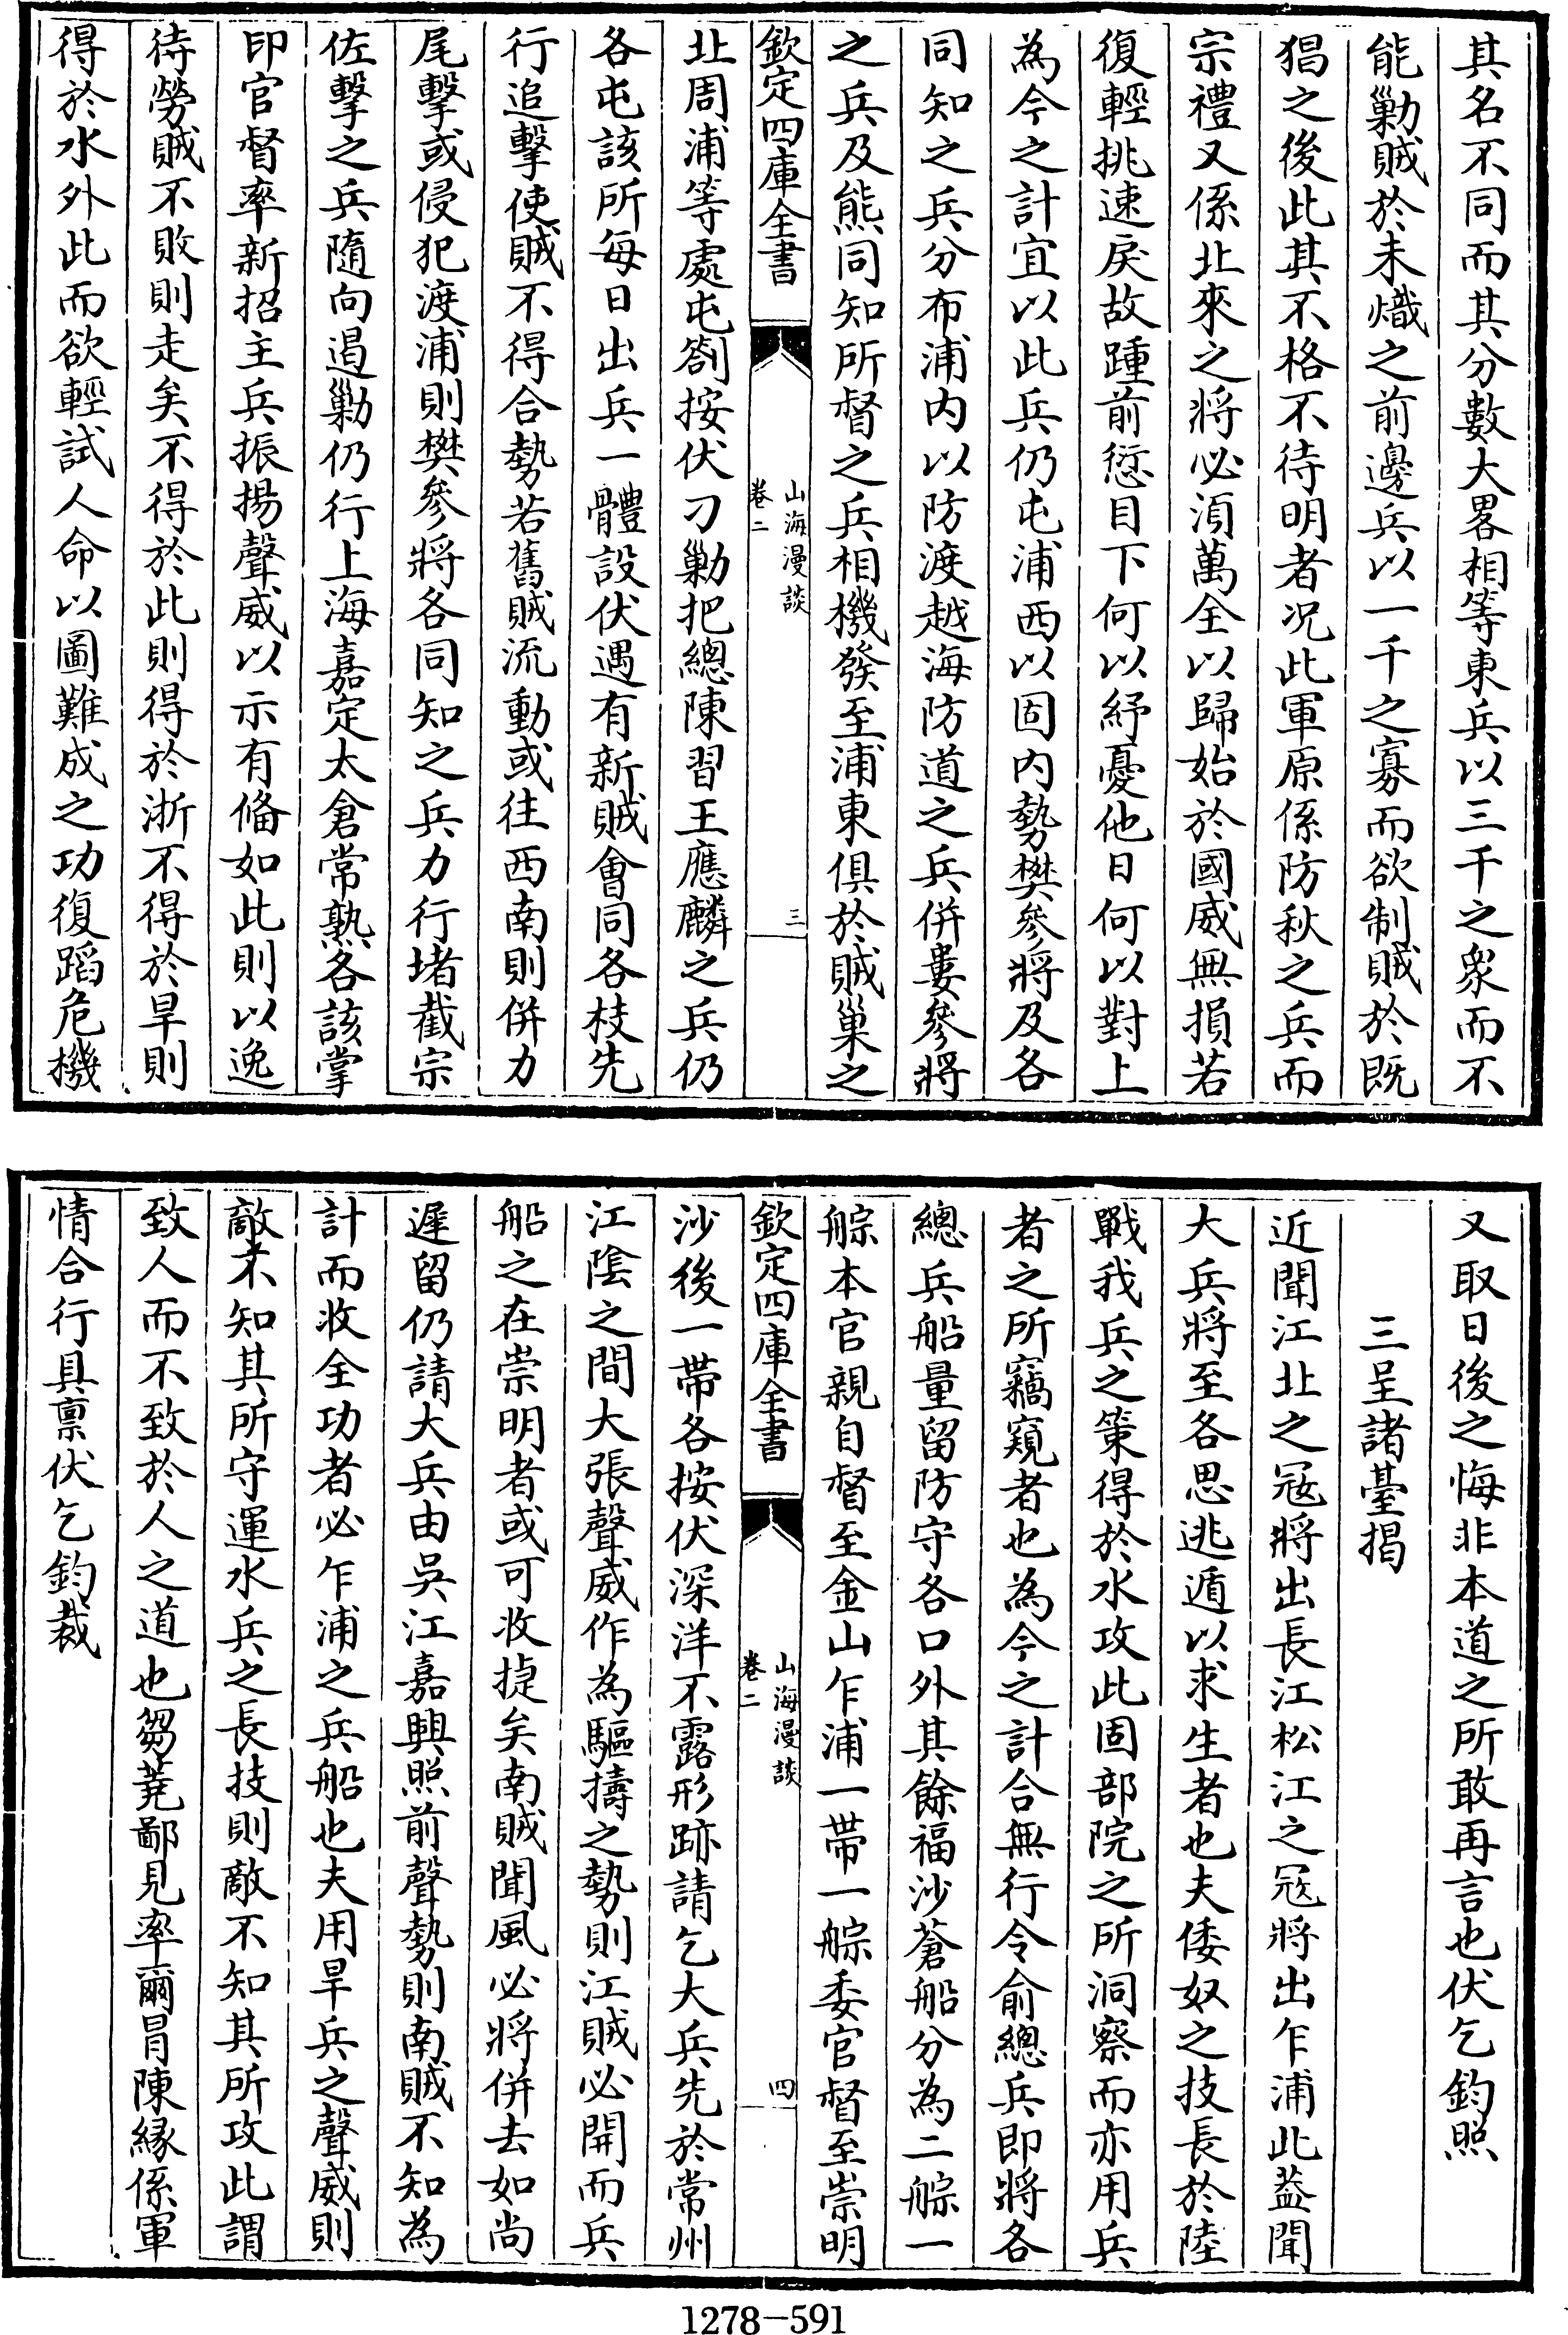 其名不同而其分數大畧相等東兵以三千之衆而不
能勦賊於未熾之前邊兵以一千之寡而欲制賊於既
猖之後此其不格不待明者况此軍原係防秋之兵而
宗禮又係北來之將必湏萬全以歸始於國威無損若
復輕挑速戾故踵前愆目下何以紓憂他日何以對上
為今之計宜以此兵仍屯浦西以固内勢樊參將及各
同知之兵分布浦内以防渡越海防道之兵併婁參將
之兵及熊同知所督之兵相機發至浦東俱於賊巢之
欽定四庫全書
山海漫談
卷二
三
北周浦等處屯劄按伏刁勦把總陳習王應麟之兵仍
各屯該所每日出兵一體設伏遇有新賊會同各枝先
行追擊使賊不得合勢若舊賊流動或往西南則併力
尾擊或侵犯渡浦則樊參將各同知之兵力行堵截宗
佐擊之兵隨向遏勦仍行上海嘉定太倉常熟各該掌
印官督率新招主兵振揚聲威以示有俻如此則以逸
待勞賊不敗則走矣不得於此則得於浙不得於旱則
得於水外此而欲輕試人命以圖難成之功復蹈危機
又取日後之悔非本道之所敢再言也伏乞鈞照
三呈諸臺揭
近聞江北之冦將出長江松江之冦將出乍浦此葢聞
大兵將至各思逃遁以求生者也夫倭奴之技長於陸
戰我兵之策得於水攻此固部院之所洞察而亦用兵
者之所竊窺者也為今之計合無行令俞總兵即將各
總兵船量留防守各口外其餘福沙蒼船分為二艅一
艅本官親自督至金山乍浦一帶一艅委官督至崇明
欽定四庫全書
山海漫談
卷二
四
沙後一帶各按伏深洋不露形跡請乞大兵先於常州
江陰之間大張聲威作為驅擣之勢則江賊必開而兵
船之在崇明者或可收㨗矣南賊聞風必將併去如尚
遲留仍請大兵由吳江嘉興照前聲勢則南賊不知為
計而收全功者必乍浦之兵船也夫用旱兵之聲威則
敵不知其所守運水兵之長技則敵不知其所攻此謂
致人而不致於人之道也芻蕘鄙見率爾冐陳緣係軍
情合行具禀伏乞鈞裁
1278-591